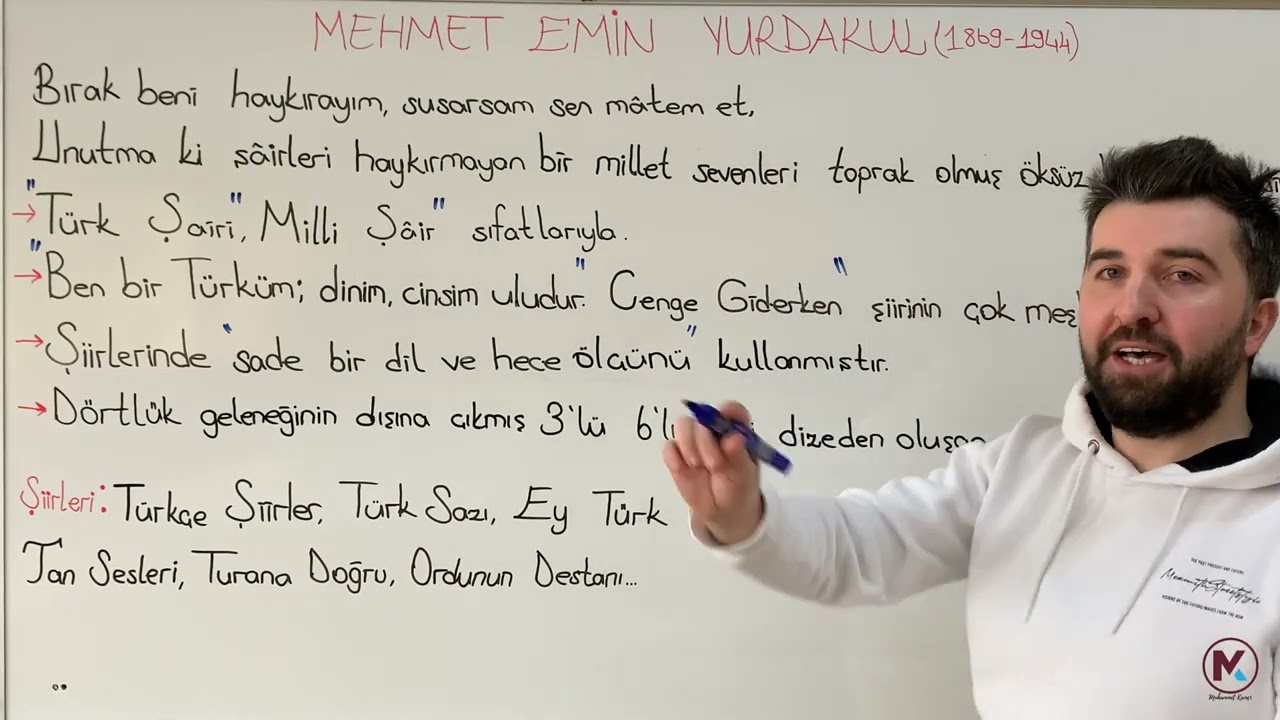 MEHMET EMİN YURDAKUL (1869-1944)
Bırak beni haykırayım, susarsam sen mâtem et,
Unutma ki şâirleri haykırmayan bir millet sevenleri toprak olmuş öksüz
→ "Türk Şairi", Milli Şâir" sıfatlarıyla.
→ "Ben bir Türküm; dinim, cinsim uludur." Cenge Giderken" şiirinin çok meş
→ Şiirlerinde "sade bir dil ve hece ölçünü" kullanmıştır.
→ Dörtlük geleneğinin dışına çıkmış 3'lü 6'lı dizeden oluşan
Şiirleri: Türkçe Şiirler, Türk Sazı, Ey Türk
Tan Sesleri, Turana Doğru, Ordunun Destanı...
THE PAST PRESENT AND FUTURE
MK